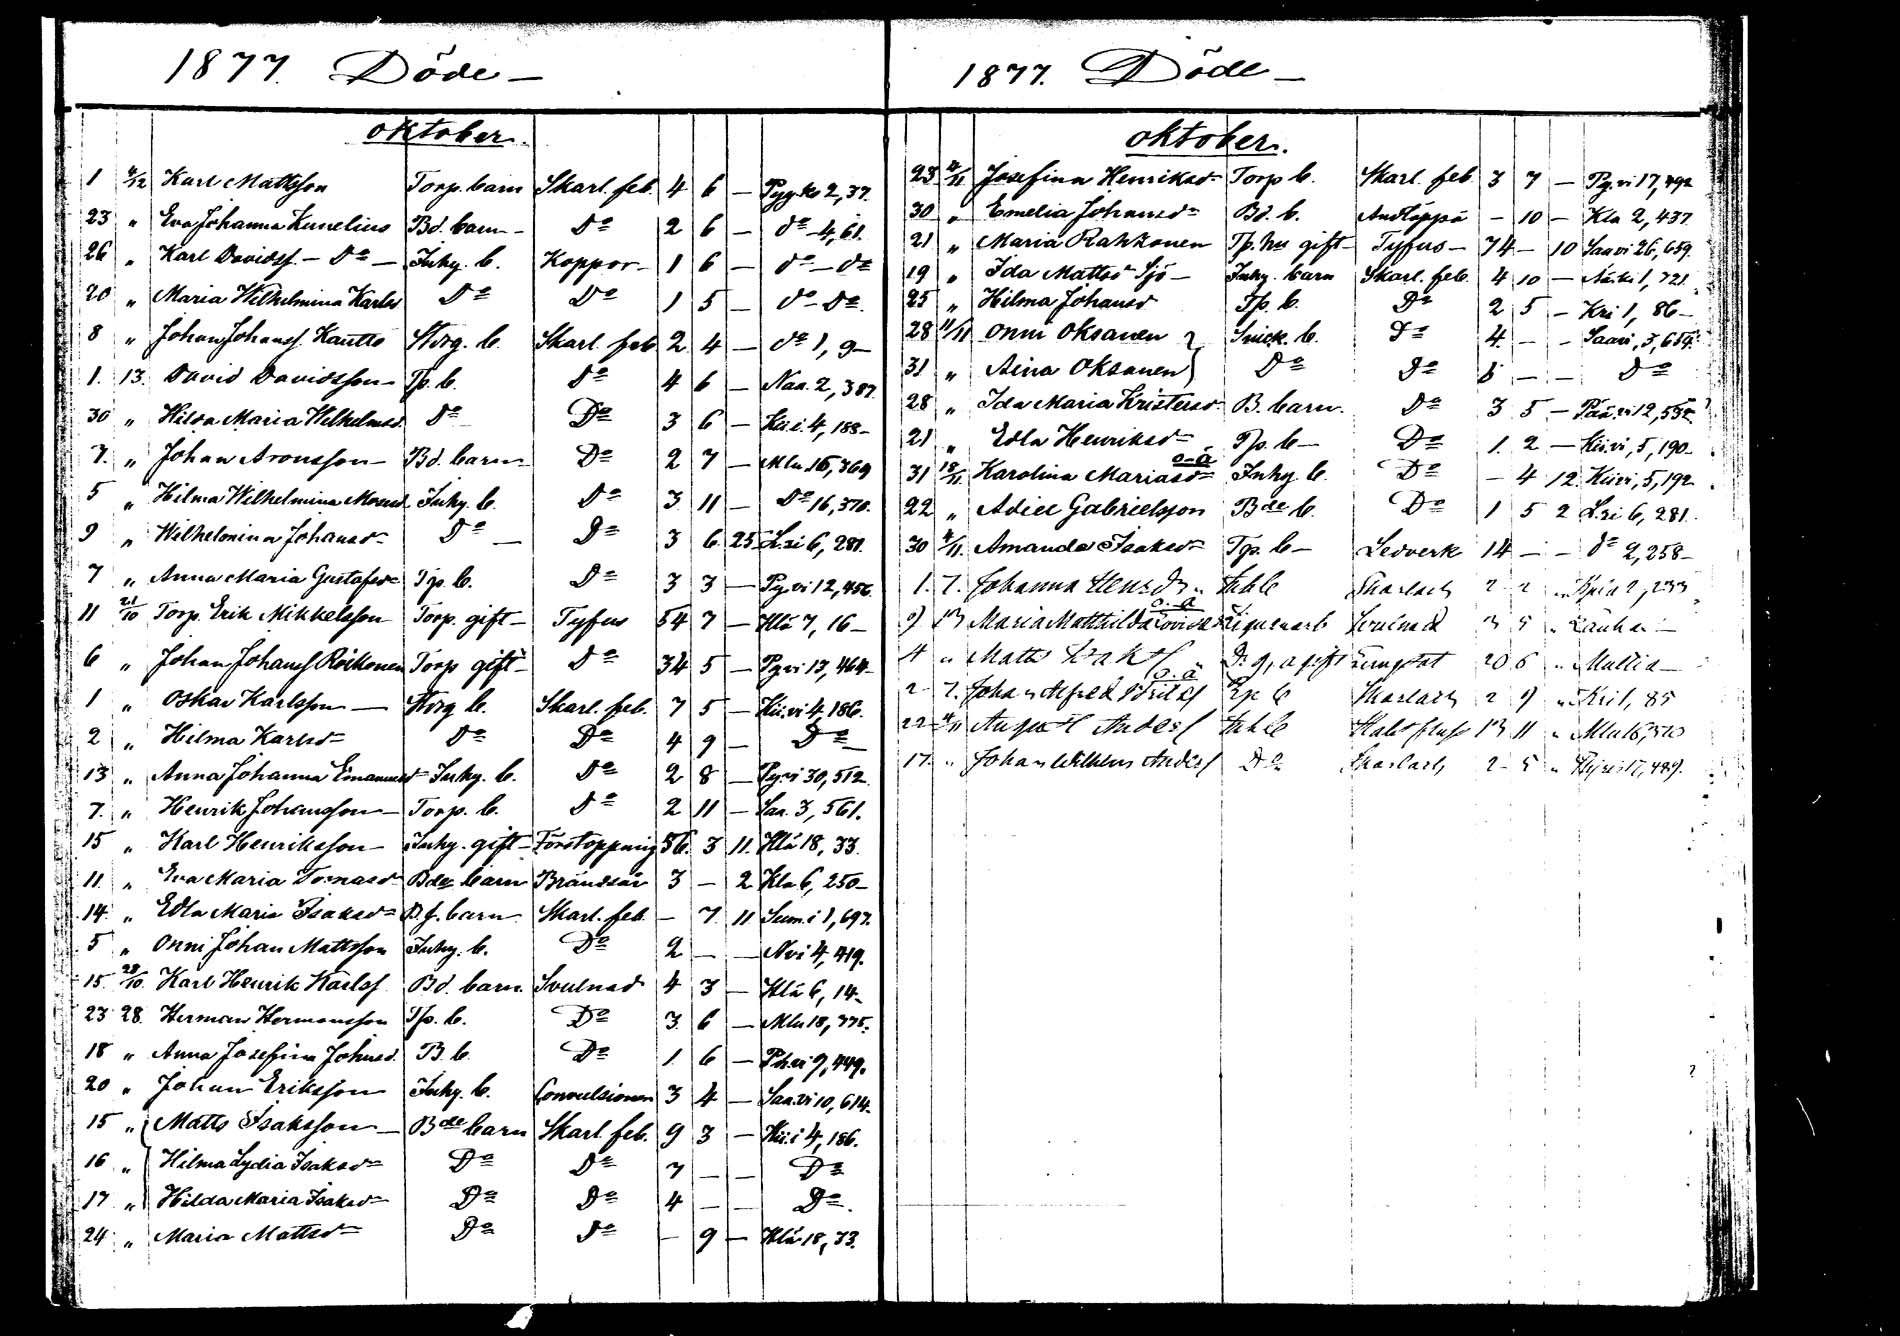 1877. Döde —
oktober.
1 4/12 Karl Mattsson Torp. barn Skarl. feb. 4 6 — Pyy.ko 2, 37.
23 " Eva Johanna Kumelius Bd. barn — Do 2 6 — do — 4, 61.
26 " Karl Davidss. — Do — Inhy. b. Koppor — 1 6 — do — do
20 " Maria Wilhelmina Karlsd Do Do 1 5 — do — Do.
8 " Johan Johanss. Kautto Storg. b. Skarl. feb 2 4 — do 1, 9 —
1. 13. David Davidsson — Tp. b. Do 4 6 — Naa. 2, 387.
30 " Hilda Maria Wilhelmsd. Do Do 3 6 — Kii.i. 4, 188 —
7. " Johan Aronsson — Bd. barn Do 2 7 — Mlu. 16, 369
5 " Hilma Wilhelmina Mosesd. Inhy. b. Do 3 11 — Do 16, 370.
9 " Wilhelmina Johansd Do — Do 3 6 25 L.si 6, 281.
7 " Anna Maria Gustafsd Tp. b. Do 3 3 — Py.vi 12, 456.
11 21/10 Torp. Erik Mikkelsson Torp. gift — Tyfus 54 7 — Klä 7, 16 —
6 " Johan Johanss. Roikonen Torp gift — Do 34 5 — Py.vi 13, 464.
1 " Oskar Karlsson — Storg b. Skarl. feb. 7 5 — Kii.vi 4, 186.
2 " Hilma Karlsd Do Do 4 9 — Do
13 " Anna Johanna Emanuelsd Inhy. b. Do 2 8 — Py.vi 30, 512.
7. " Henrik Johansson — Torp. b. Do 2 11 — Saa. 3, 561.
15 " Karl Henriksson — Inhy. gift — Förstoppning 56. 3 11. Klä 18, 33.
11. " Eva Maria Tomasd Bde barn Brändsår 3 — 2 Kla 6, 250 —
14. " Edla Maria Isaksd B.f. barn Skarl. feb. — 7 11 Sum.i 1, 697.
5 " Onni Johan Mattsson Inhy. b. Do 2 — — N.vi 4, 419.
15. 28/10 Karl Henrik Karlss. Bd. barn. Svulnad 4 3 — Klä 6, 14.
23 28. Herman Hermansson Tp. b. Do 3 6 — Mlu 18, 775.
18 " Anna Josefina Johansd. B. b. Do 1. 6 — Ph.vi 9, 449.
20 " Johan Eriksson Inhy. b. Convulsioner 3 4 — Saa.vi 10, 614.
15 " Matts Isaksson — Bde barn Skarl. feb. 9 3 — Kii.i 4, 186.
16 " Hilma Lydia Isaksd Do Do 7 — — Do
17 " Hilda Maria Isaksd Do Do 4 — — Do.
24 " Maria Mattsd Do Do — 9 — Klä 18, 33.
1877. Döde —
oktober.
23 4/11 Josefina Henriksd Torp b. Skarl. feb 3 7 — Py.vi 17, 492
30 " Emelia Johansd Bd. b. Andtäppa — 10 — Kla 2, 437.
21 " Maria Rahkonen Tp. hu gift — Tyfus — 74 — 10 Saa.vi 26, 659.
19 " Ida Mattsd Sjö — Inhy. barn Skarl. feb. 4 10 — 1, 721
25 " Hilma Johansd Tp. b. Do 2 5 — Kri 1, 86 —
28 11/11 Onni Oksanen Snick. b. Do 4. — — Saavi, 3, 654.
31 " Aina Oksanen Do Do — — Do
28 " Ida Maria Kristersd B. barn. Do 3 5 — Pää.vi 12, 552
21 " Edla Henriksd Tp. b — Do 1. 2 — Kii.vi, 5, 190
o.ä
31 18/11 Karolina Mariasd Inhy. b. Do — 4 12. Kii.vi, 5, 192
22 " Adiel Gabrielsson Bde b. Do 1 5 2 L.si 6, 281.
30 4/11. Amanda Isaksd Tp. b — Ledverk 14 — — do 2, 258 —
1. 7. Johanna Hensd Inh b Skarlach 2 2 " 2, 233
o. ä
9 13 Maria Matthilda Lovisasd Zigenarb Svulnad 13 5 " Lauha —
4 " Matts D. g, a gift Lungsot 20 6 " Multia —
o. ä
2 7. Johan Alfred Tp b Skarlach 2 9 " Kri 1, 85
22 4/11 August Anderss Inh b 13 11 " Mlu 16, 370
17. " Johan Wilhelm Anderss Do Skarlach 2 5 " Py.vi 17, 489.